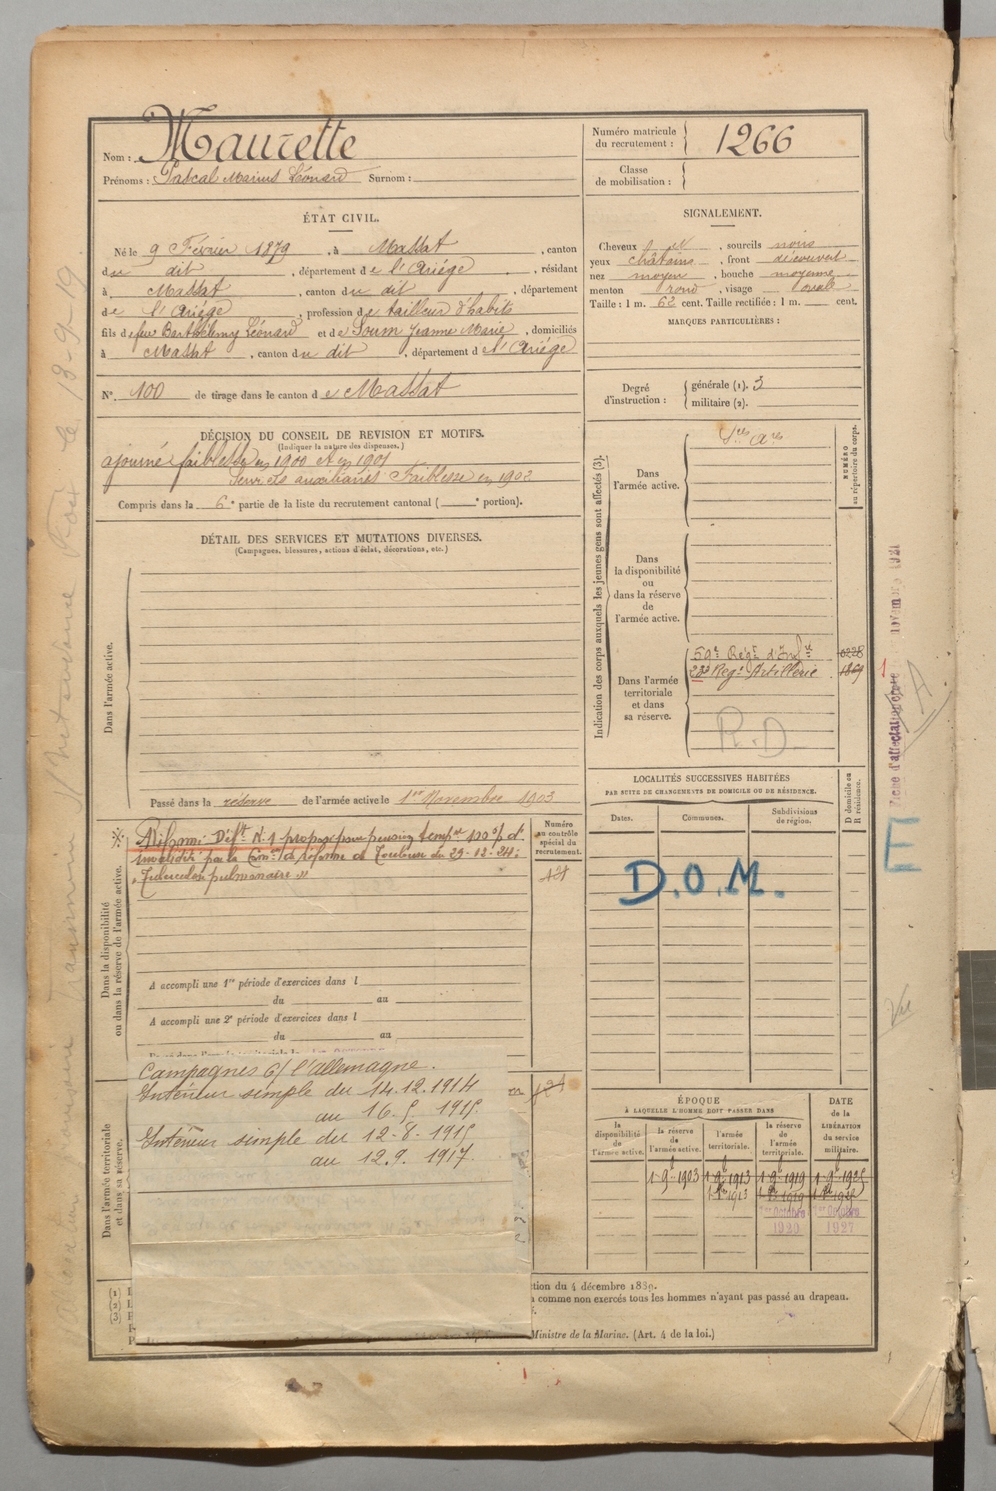 Nom : Maurette
Prénoms : Pascal Marius Léonard Surnom :
Numéro matricule du recrutement : 1266
Classe de mobilisation :
ÉTAT CIVIL.
Né le 9 Février 1879, à Massat, canton
du dit, département de l'Ariège, résidant
à Massat, canton du dit, département
de l'Ariège, profession de tailleur d'habits
fils de feu Barthélemy Léonard et de Soum Jeanne Marie, domiciliés
à Massat, canton du dit, département de l'Ariège
N° 100 de tirage dans le canton de Massat
SIGNALEMENT.
Cheveux et, sourcils noirs
yeux châtains, front découvert
nez moyen, bouche moyenne
menton rond, visage ovale
Taille : 1 m. 62 cent. Taille rectifiée : 1 m. cent.
MARQUES PARTICULIÈRES :
Degré d'instruction : générale (1). 3
militaire (2).
DÉCISION DU CONSEIL DE REVISION ET MOTIFS.
(Indiquer la nature des dispenses.)
ajourné faiblesse en 1900 et en 1901
Services auxiliaires Faiblesse en 1902
Compris dans la 6e partie de la liste du recrutement cantonal ( e portion).
DÉTAIL DES SERVICES ET MUTATIONS DIVERSES.
(Campagnes, blessures, actions d'éclat, décorations, etc.)
Dans l'armée active.
Passé dans la réserve de l'armée active le 1er Novembre 1903
Dans la disponibilité
ou dans la réserve de l'armée active.
Réformé Déft N. 1 propose pour pension temp re 100 % d'
invalidité par la Con on de réforme de Toulouse du 29-12-24 :
"Tuberculose pulmonaire"
Numéro au contrôle spécial du recrutement.
A accompli une 1re période d'exercices dans l
du au
A accompli une 2e période d'exercices dans l
du au
Campagnes c/ l'allemagne.
Intérieur simple du 14.12.1914
au 16.5.1915.
Intérieur simple du 12-8-1915
au 12.9.1917.
Dans l'armée territoriale
et dans sa réserve.
Indication des corps auxquels les jeunes gens sont affectés (3).
NUMÉRO au répertoire du corps.
Dans l'armée active.
Dans la disponibilité ou dans la réserve de l'armée active.
Dans l'armée territoriale et dans sa réserve.
59e Regt d'Infie 0228
23e Regt Artillerie 1869
R.D.
LOCALITÉS SUCCESSIVES HABITÉES
PAR SUITE DE CHANGEMENTS DE DOMICILE OU DE RÉSIDENCE.
Dates. Communes. Subdivisions de région. D domicile ou R résidence.
D.O.M.
E
ÉPOQUE
À LAQUELLE L'HOMME DOIT PASSER DANS
la disponibilité de l'armée active. la réserve de l'armée active. l'armée territoriale. la réserve de l'armée territoriale. DATE de la LIBÉRATION du service militaire.
1-9-1903 1-9-1913 1-9-1919 1-9-1925
1er Octobre 1920 1er Octobre 1927
(1)
(2)
(3)
tion du 4 décembre 1889.
comme non exercés tous les hommes n'ayant pas passé au drapeau.
Ministre de la Marine. (Art. 4 de la loi.)